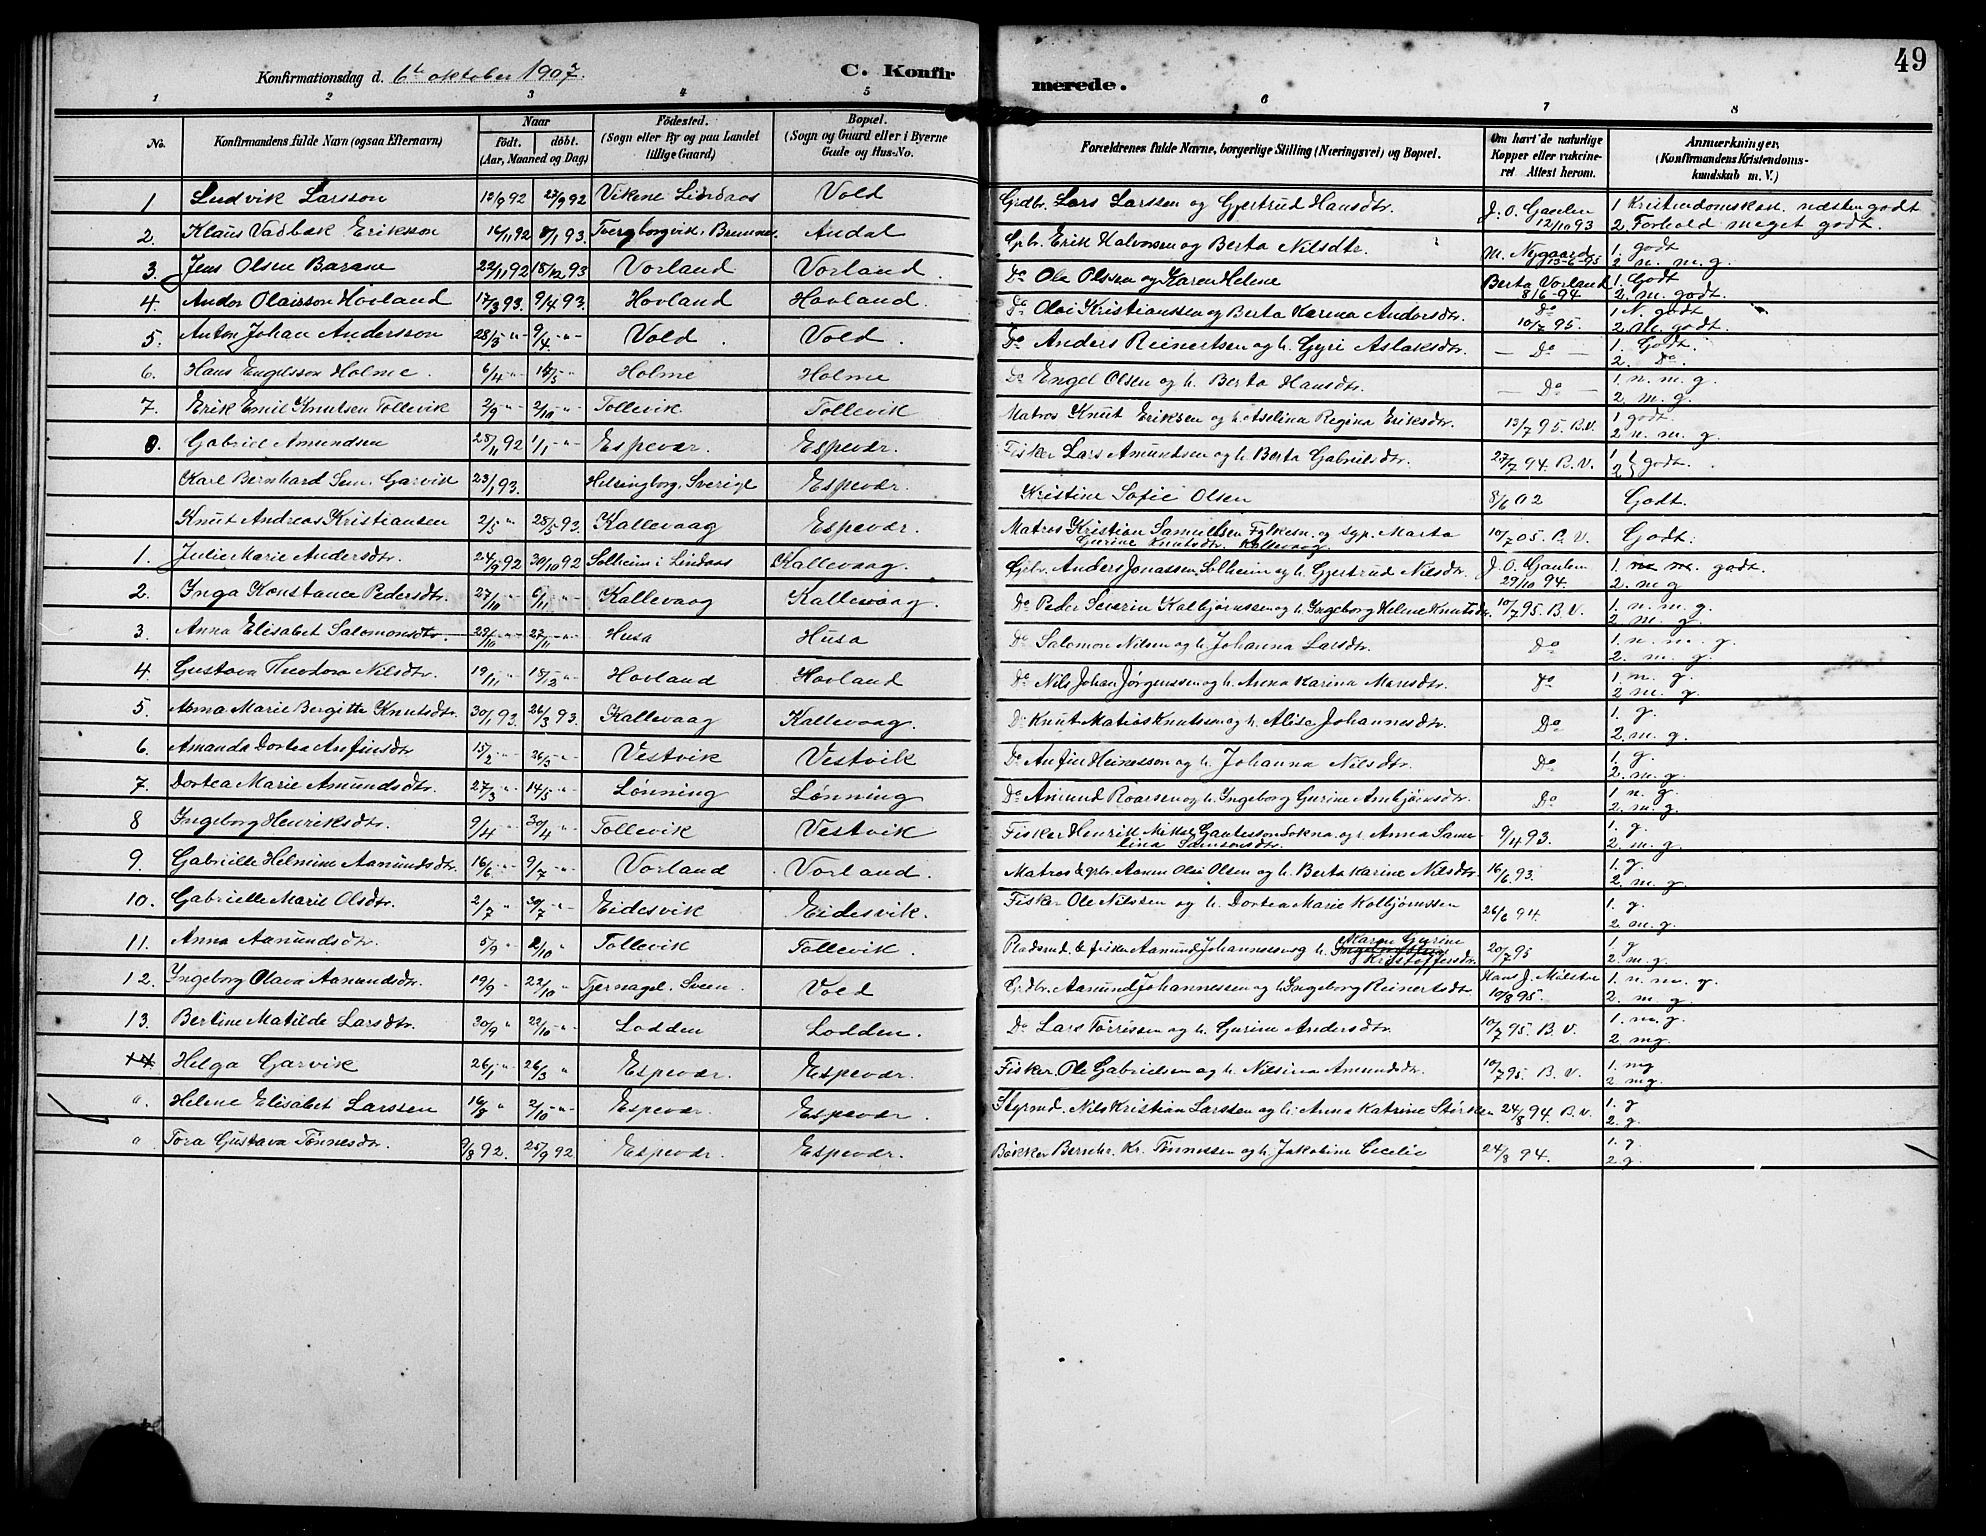 49
Konfirmationsdag d. 6te oktober 1907. C. Konfirmerede.
1 2 3 4 5 6 7 8
No. Konfirmandens fulde Navn (ogsaa Efternavn) Naar født. døbt. (Aar, Maaned og Dag) Fødested. (Sogn eller By og paa Landet tillige Gaard) Bopæl. (Sogn og Gaard eller i Byerne Gade og Hus-No. Forældrenes fulde Navne, borgerlige Stilling (Næringsvei) og Bopæl. Om havt de naturlige Kopper eller vakcineret Attest herom. Anmærkninger, (Konfirmandens Kristendomskundskab m. V.)
1 Ludvik Larsson 12/9 92 27/9 92 Vikene Lindaas Vold Grdbr. Lars Larssen og Gjertrud Hansdtr. J. O. Gaulen 12/10 93 1 Kristendomsksk. næsten godt
2. Klaus Vadbak Erikson 16/1 92 8/1 93. Andal Gbr. Erik Halvorsen og Berta Nilsdtr. M. Nygaard 13-6-95 2. Forhold meget godt. 1. godt 2. n. m. g.
3. Jens Olsen Barane 22/11 92 18/12 93 Vorland Vorland Do Ole Olsen og Karen Helene Berta Vorland 8/6-94 1. Godt 2. m. godt.
4. Andor Olaisson Hovland 17/3 93. 9/4 93. Hovland Hovland. Do Olai Kristianssen og Berta Karina Andersdtr. Do 10/7 95. 1 N. godt 2. m. godt.
5. Anton Johan Andersson 28/3 -"- 9/4 -"- Vold Vold. Do Anders Reinertsen og h. Gyri Aslaksdtr. — Do — 1. Godt 2. Do
6. Hans Engelsson Holme. 6/4 -"- 14/5 -"- Holme Holme Do Engel Olsen og h. Berta Hansdtr. — Do — 1. n. m. g. 2. m. g.
7. Erik Emil Knutsen Tollevik 2/9 -"- 2/10 -"- Tollevik Tollevik Matros Knut Eriksen og h. Aselina Regina Eriksdtr. 13/7 95. B.V. 1 godt 2 n. m. g.
8. Gabriel Amundsen 28/11 92 1/1 -"- Espevær. Espevær. Fisker Lars Amundsen og h. Berta Gabrielsdtr. 27/7 94. B.V. 1 2 } godt.
Karl Bernhard Sem. Garvik 23/1 93. Helsingborg, Sverige Espevær. Kristine Sofie Olsen 8/6 02 Godt
Knut Andreas Kristiansen 2/5 " 28/5 93. Kallevaag Espevær. Matros Kristian Samuelsen Fylkesn. og gyp. Marta Gurine Knutsdtr. Kallevaag. 10/7 05. B.V. Godt.
1. Julie Marie Andersdtr. 24/9 92 30/10 92 Solheim i Lindaas Kallevaag. Gbr. Anders Jonassen Solheim og h. Gjertrud Nilsdtr. J. O. Gaulen 29/10 94. 1. godt. 2. m g
2. Inga Konstance Pedersdtr. 27/10 -"- 6/11 -"- Kallevaag Kallevaag. Do Peder Severin Kolbjørnssen og h. Ingeborg Helene Knutsdtr. 10/7 95. B.V. 1. n. m. g. 2. m. g.
3. Anna Elisabet Salomonsdtr. 29/10 -"- 27/11 -"- Husa Husa Do Salomon Nilsen og h. Johanna Larsdtr. Do 1. n. m. g. 2. m. g.
4. Gustava Theodora Nilsdtr. 19/11 -"- 18/12 -"- Hovland Hovland Do Nils Johan Jørgenssen og h. Anna Karina Monsdtr. Do 1. n. g. 2 m. g.
5. Anna Marie Bergitte Knutsdtr. 30/1 93. 26/3 93. Kallevaag Kallevaag. Do Knut Matias Knutssen og h. Alise Johannesdtr. Do 1. g. 2. m. g.
6. Amanda Dortea Anfinsdtr 15/2 -"- 26/3 -"- Vestvik Vestvik Do Anfin Heinesson og h. Johanna Nilsdtr. Do 1. g. 2. m. g.
7. Dortea Marie Amundsdtr. 27/3 " 14/5 " Lønning Lønning Do Amund Roarsen og h. Ingeborg Gurine Ambjørnsdtr. Do 1 n. g. 2. m. g.
8 Ingeborg Henriksdtr. 9/4 -"- 30/4 " Tollevik Vestvik Fisker Henrik Mikkal Gautesson Sokna, og h Anna Samelina Samsonsdtr. 9/4 93. 1. g. 2. m. g.
9. Gabrielle Helmine Aamundsdtr. 16/6 -"- 9/7 -"- Vorland Vorland. Matros & gbr. Olai Olsen og h. Berta Karine Nilsdtr. 16/6 93. 1. g. 2. m. g.
10. Gabrielle Marie Olsdtr. 2/7 " 30/7 -"- Eidesvik Eidesvik. Fisker Ole Nilssen og h. Dortea Marie Kolbjørnssen 26/6 94. 1. g. 2. m. g.
11. Anna Aamundsdtr. 5/9 " 2/10 " Tollevik Tollevik. & fisker Aamund Johannesen og h. Karen Gurine Kristoffersdtr. 20/7 95 1. g 2. m. g.
12. Ingeborg Olava Aamundsdtr. 19/9 " 22/10 -"- Tjernagel, Sveen. Vold Grdbr. Aamund Johannessen og h. Ingeborg Reinertsdtr Hans J. Milstre 10/8 95. 1. n. m. g. 2. m. g.
13. Bertine Matilde Larsdtr. 30/9 " 22/10 -"- Lodden Lodden. Do Lars Torrissen og h. Gurine Andersdtr. 10/7 95. B.V. 1. m. g. 2. mg
14 Helga Garvik 26/1 -"- 26/3 " Espevær. Espevær. Fisker Ole Gabrielsen og h. Nilsina Amundsdtr. 10/7 95. B.V. 1. mg 2 mg.
a. Helene Elisabet Larssen 16/8 " 2/10 -"- Espevær. Espevær. Styrmd. Nils Kristian Larssen og h. Anna Katrine Størksen 24/8 94. B.V. 1. g 2. g.
a Tora Gustava Tønnesdtr. 9/8 92. 25/9 92 Espevær. Espevær. Bøkker Bernhr. Kr. Tønnessen og h. Jakobine Cecelie 24/8 94. 1. g 2 g.